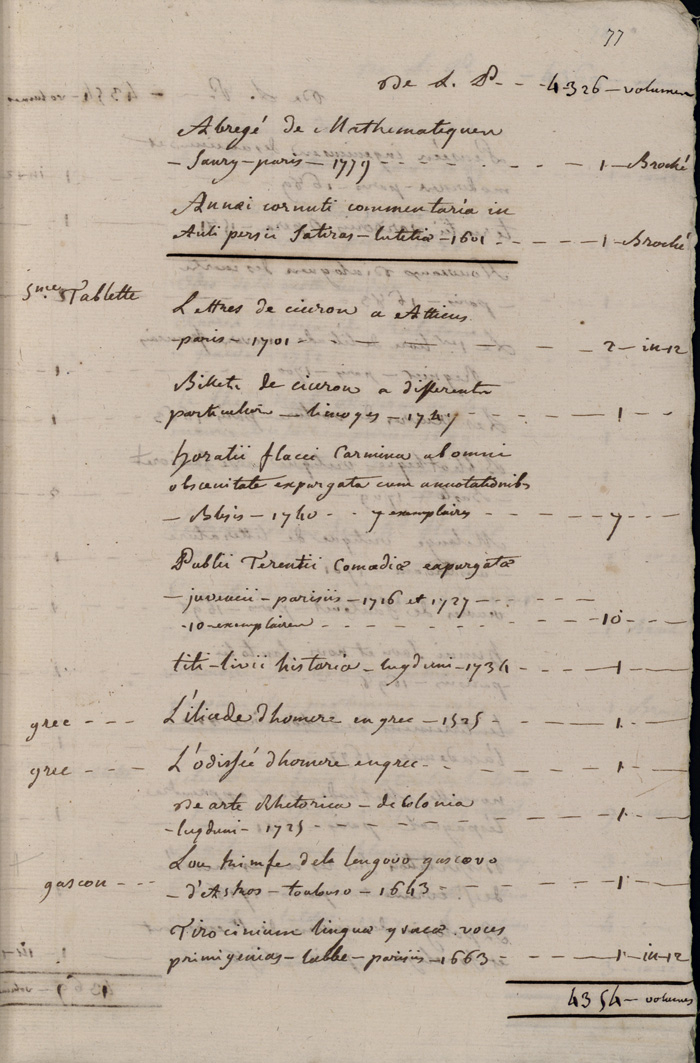 77
De L. P. - - 4326 - volumes
Abregé de Mathematiques
- Saury - paris - 1779 - - - - - 1 - Broché
Annæi cornuti commentaria in
Auli persii Satiras - lutetiæ - 1601 - - - - 1 - Broché
5me Tablette
Lettres de ciceron a Atticus
- paris - 1701 - - - - - 2 - in-12
Billets de ciceron a differents
particuliers - limoges - 1747 - - - - 1 -
horatii flacci Carmina ab omni
obscenitate expurgata cum annotationibs
- Blesis - 1740 - - 7 exemplaires - - - 7 -
Publii Terentii Comœdiæ expurgatæ
- juvencii - parisiis - 1716 et 1727 - - - -
- 10 - exemplaires - - - - - 10 - -
titi-livii historia - lugduni - 1734 - - - 1 -
grec - - - L'iliade d'homere en grec - 1525 - - - 1 -
grec - - - L'odissée d'homere en grec - - - - 1 -
De arte Rhetorica - de Colonia
- lugduni - 1725 - - - - - 1 -
gascon - - - Lou trimfe de la lengovo gascovo
- d'Astros - toulouso - 1643 - - - - 1 -
Tirocinium linguæ græcæ voces
primigenias - labbe - parisiis - 1663 - - - - 1 - in-12
4354 - volumes